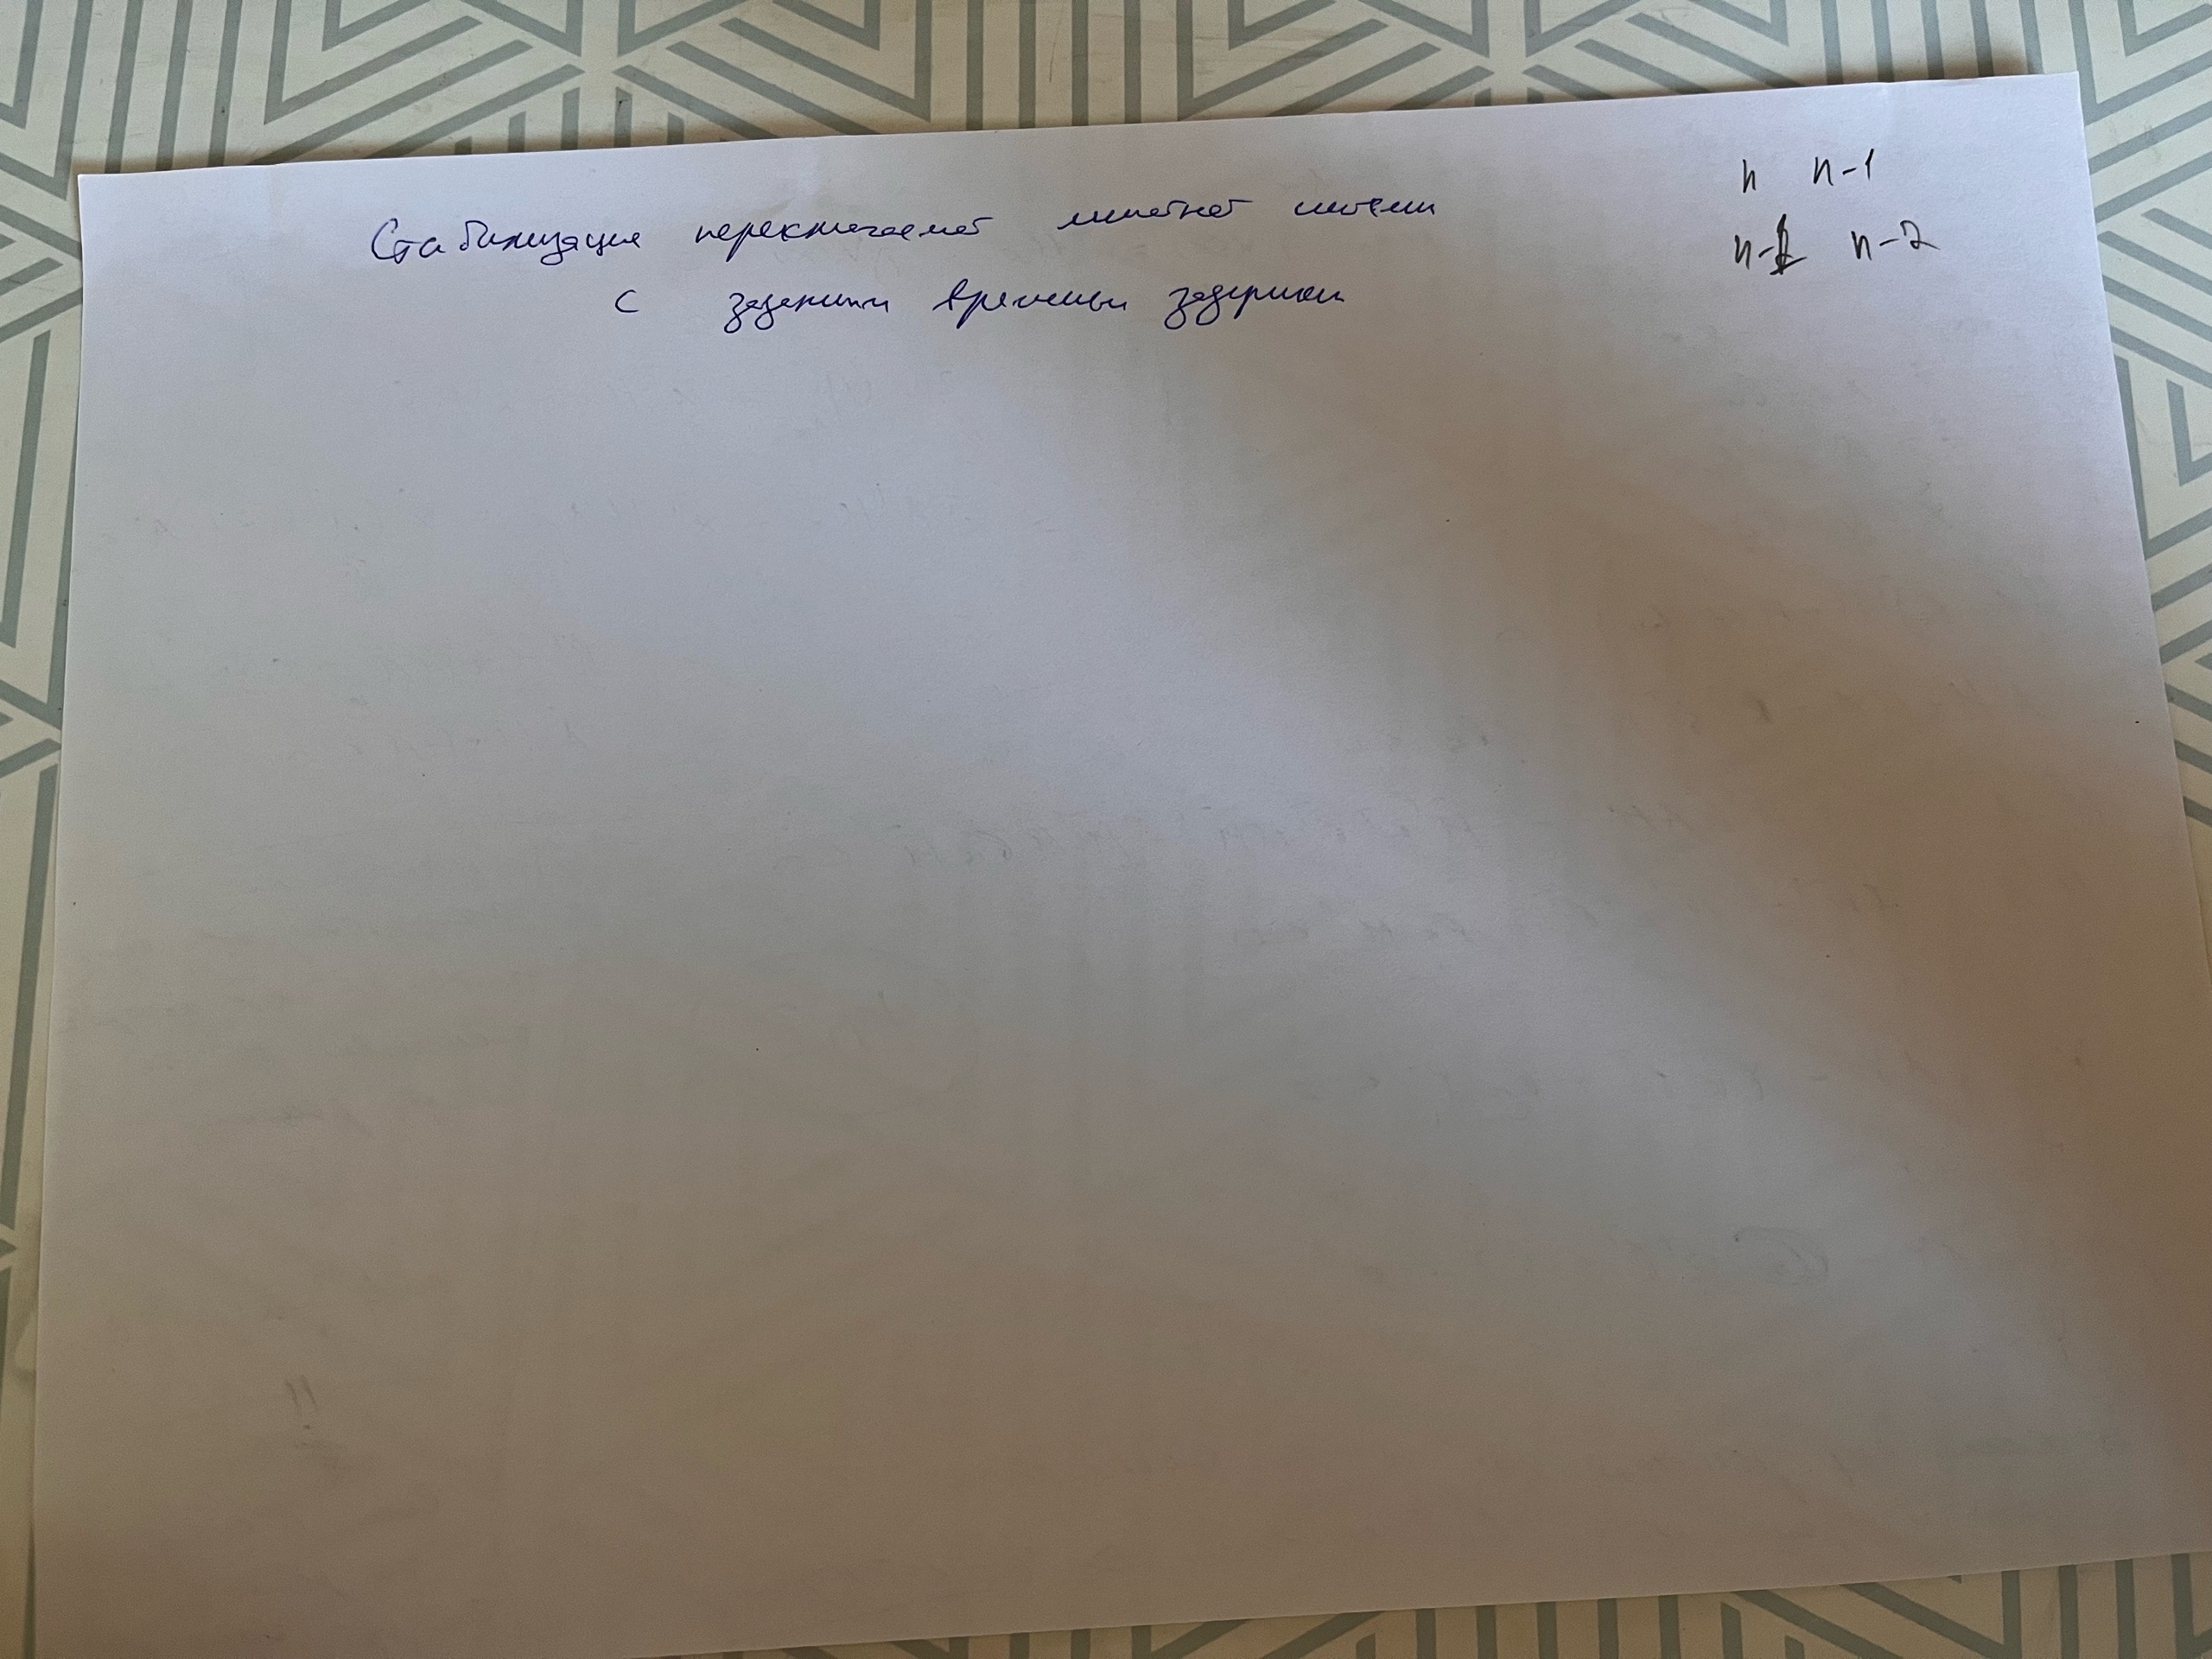 Стабилизация переключаемой линейной системы
с заданными временем задержки
n n-1
n-1 n-2